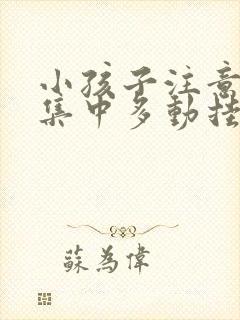 小孩子注意
集中多動挂
蘇為偉